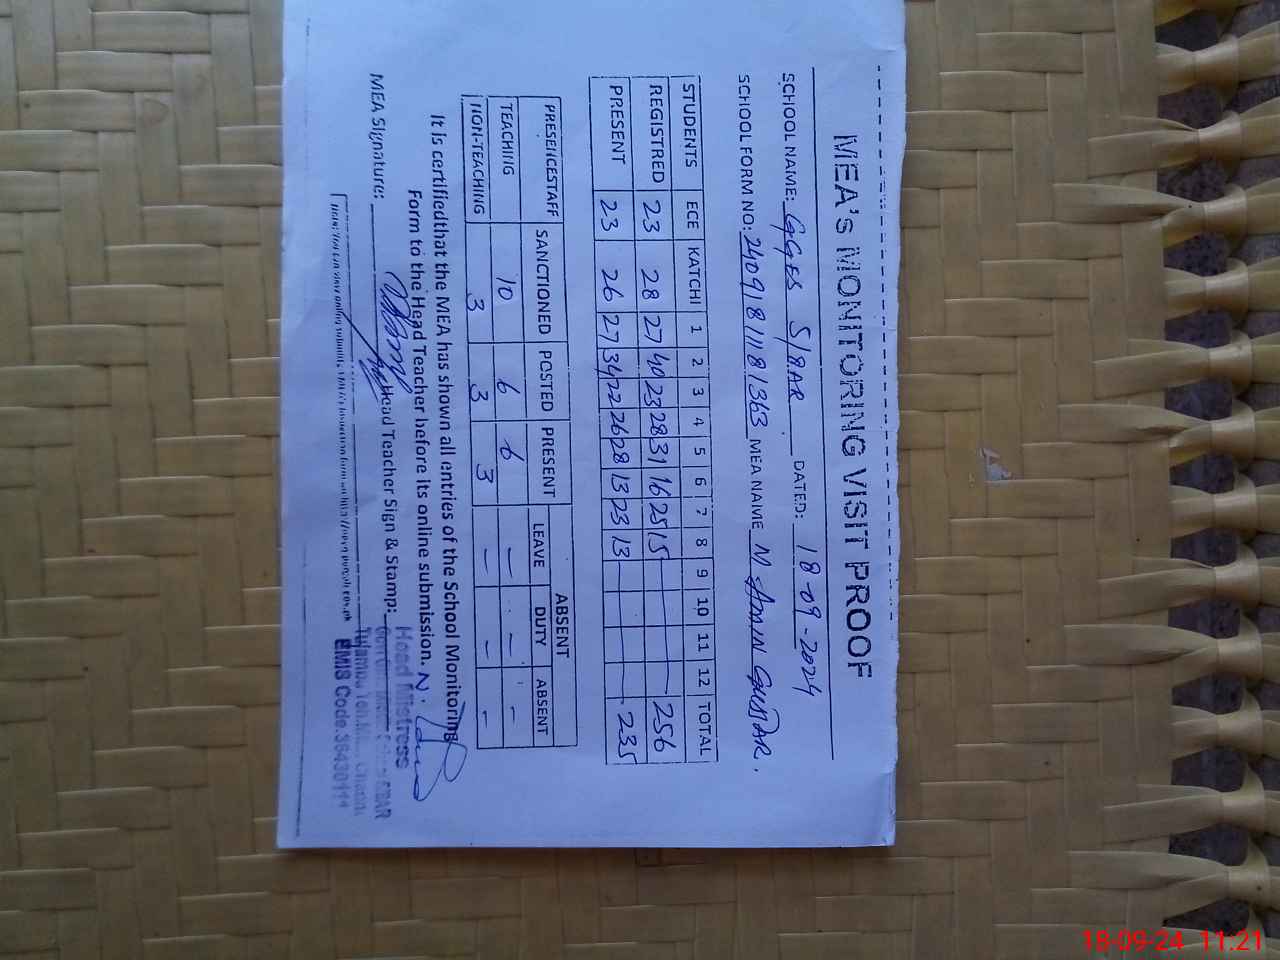 MEA's MONITORING VISIT PROOF
SCHOOL NAME: GGES 5/8AR DATED: 18-09-2024
SCHOOL FORM NO: MEA NAME M Amin
STUDENTS ECE KATCHI 1 2 3 4 5 6 7 8 9 10 11 12 TOTAL
REGISTRED 23 28 27 40 23 28 31 16 25 15 256
PRESENT 23 26 27 34 22 26 28 13 23 13 235
PRESENCESTAFF SANCTIONED POSTED PRESENT ABSENT
LEAVE DUTY ABSENT
TEACHING 10 6 6 - - -
NON-TEACHING 3 3 3 - - -
It is certifiedthat the MEA has shown all entries of the School Monitoring
Form to the Head Teacher before its online submission.
MEA Signature: Head Teacher Sign & Stamp: Head Mistress
EMIS Code.
18-09-24 11:21